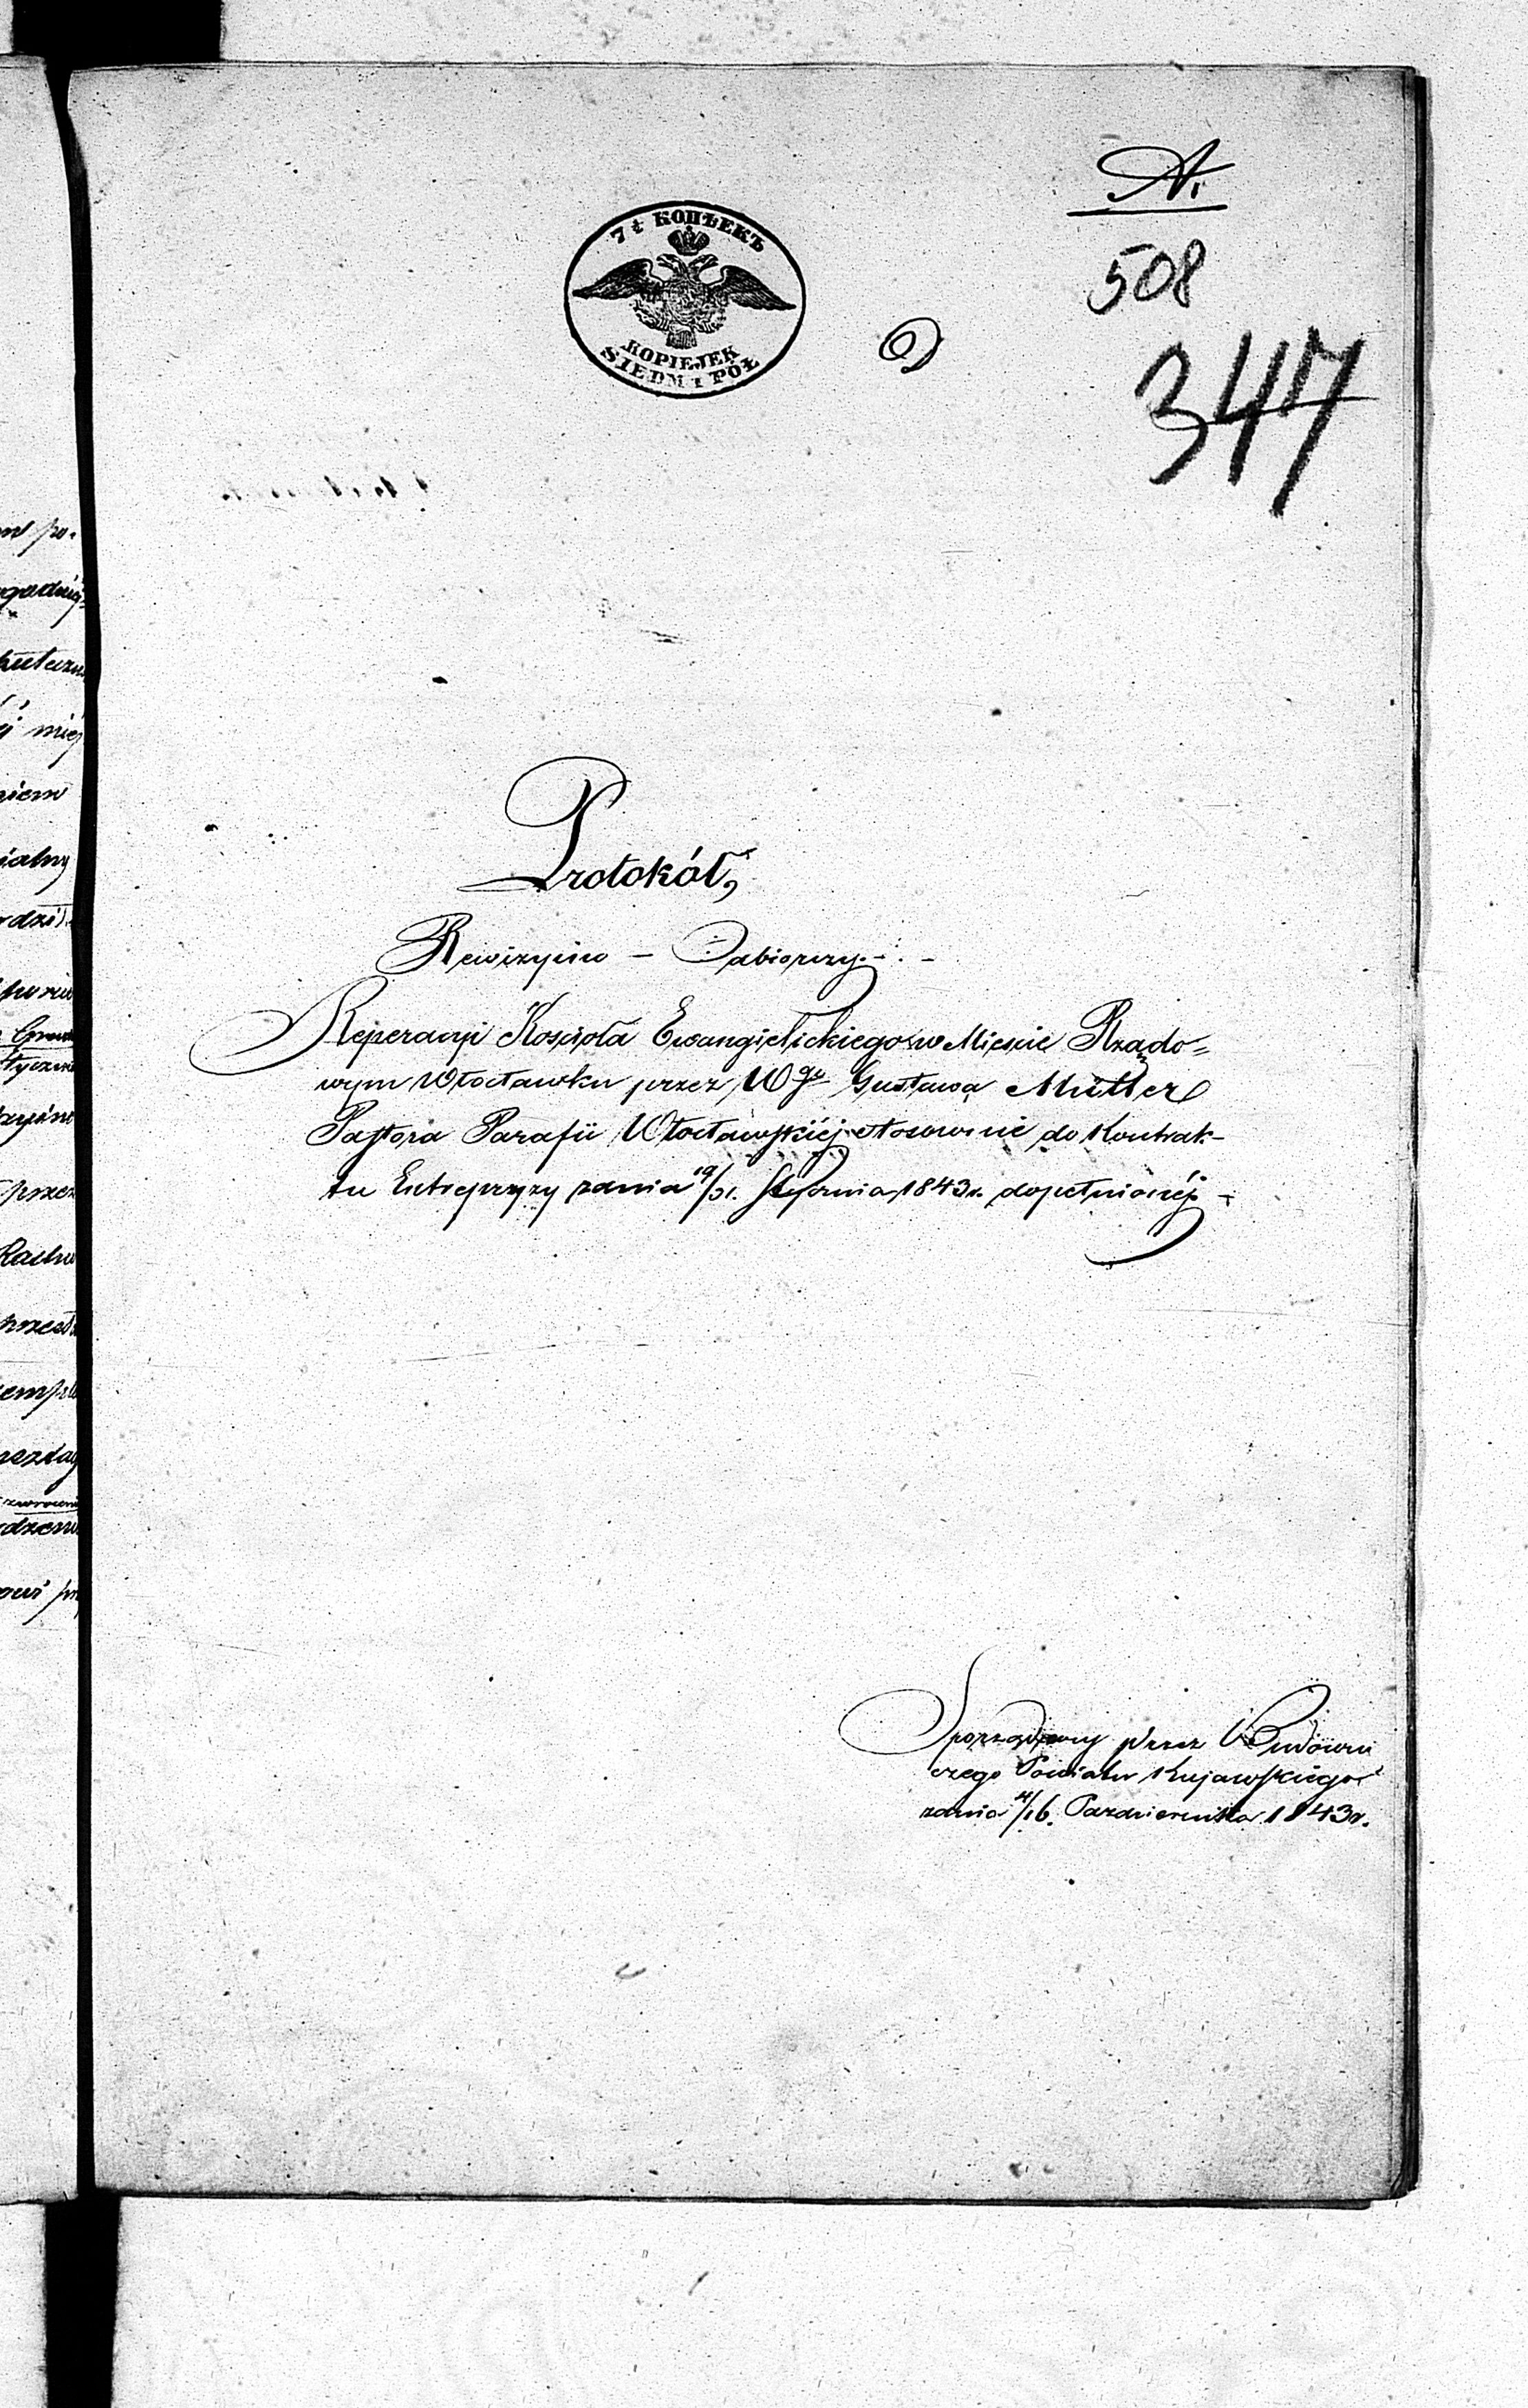 A.
508
347
7½ КОПѢЕКЪ
KOPIEJEK
SIEDM I PÓŁ
D
Protokół,
Rewizyino – Odbiorczy. –
Reperacyi Koscioła Ewangielickiego w Miescie Rządo=
wym Włocławku przez Wgo Gustawa Müller
Pastora Parafii Włocławskiéj stosownie do Kontrak-
tu Entrepryzy zdnia 19/31. Stycznia 1843r. dopełnionéj –
Sporządzony przez Budowni
czego Powiatu Kujawskiego
zdnia 4/16. Pazdziernika 1843r.
w po-
miéj
niem
ialny
dzi
przez
Rachu
przed
dzeni